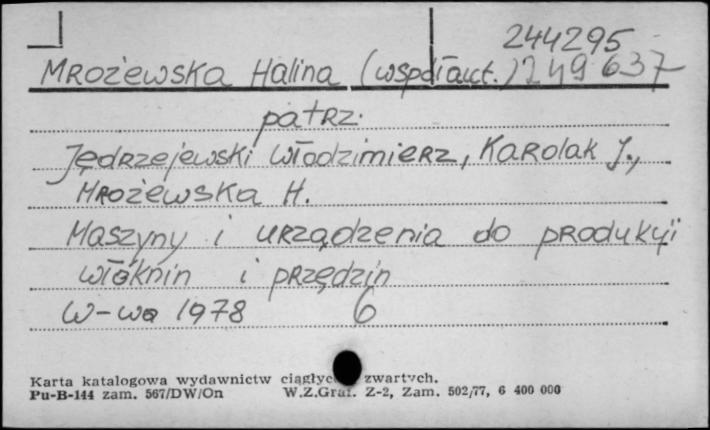 244295
Mrożewska Halina (współaut.) 249637
patrz:
Jędrzejewski Włodzimierz, Karolak J.,
Mrożewska H.
Maszyny i urządzenia do produkcji
włóknin i przędzin
W-wa 1978 6
Karta katalogowa wydawnictw ciągłyc zwartych.
Pu-B-144 zam. 567/DW/On W.Z.Graf. Z-2, Zam. 502/77, 6 400 000